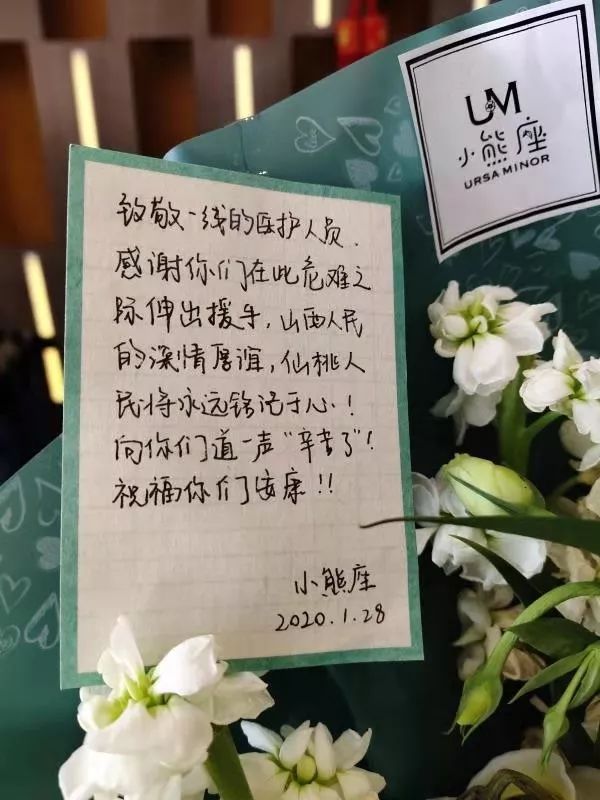 UM
小熊座
URSA MINOR
致敬一线的医护人员.
感谢你们在此危难之
际伸出援手,山西人民
的深情厚谊,仙桃人
民将永远铭记于心!
向你们道一声"辛苦了"!
祝福你们安康!!
小熊座
2020.1.28